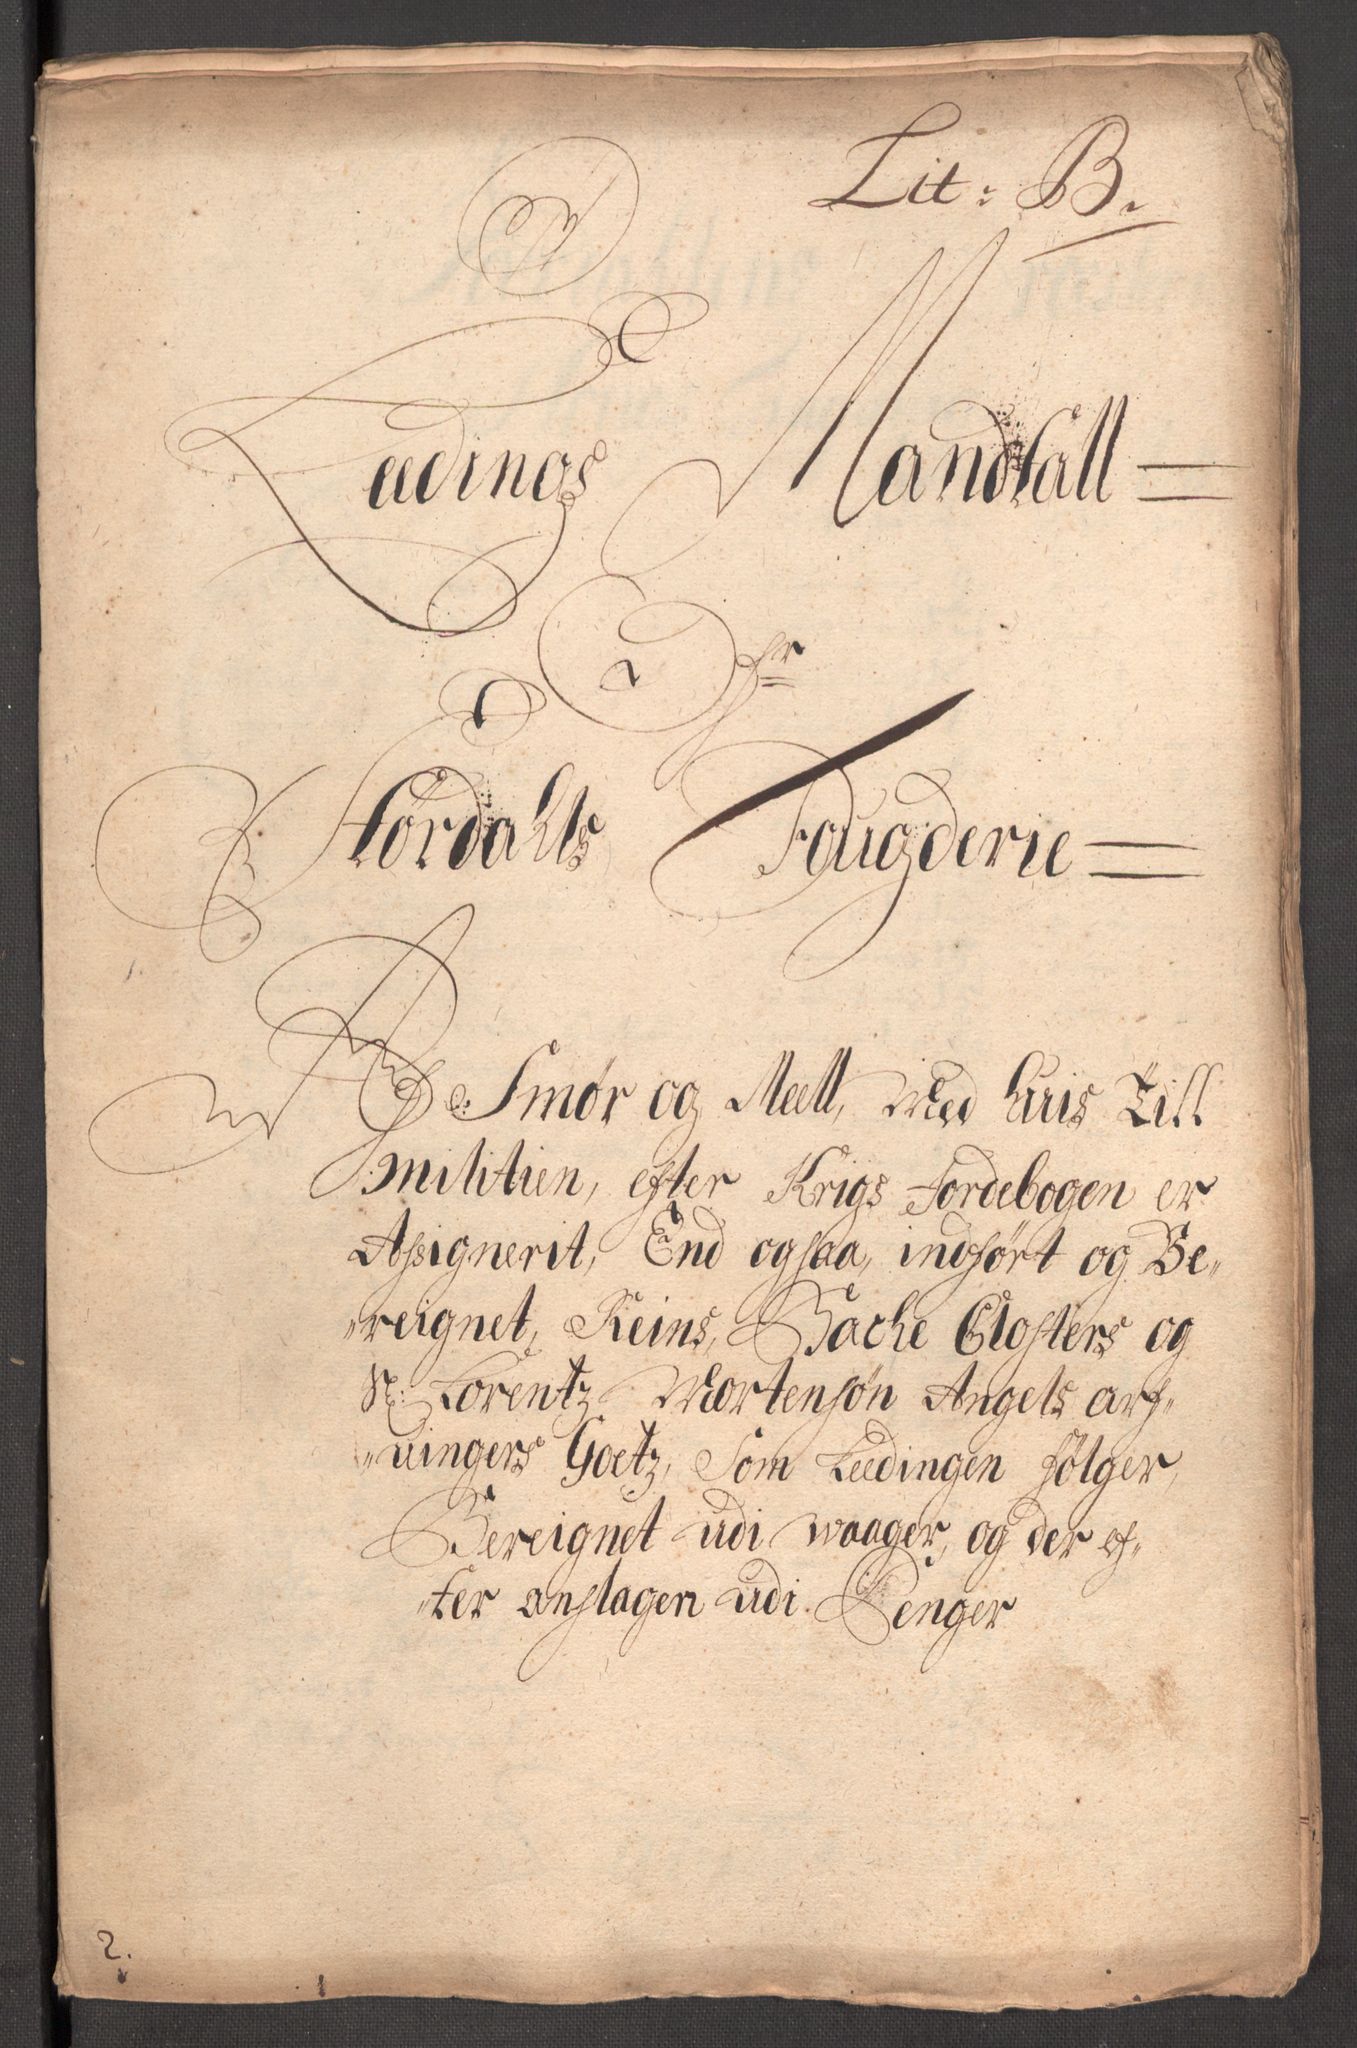 Lit: B.
Leedings Mandtall
Ofr
Størdalls Fougderie
De Smør og Meell, Med huis Till
militien, efter Krigs Jordebogen er
Assignerit, End ogsaa, indført og Be„
„reignet, Reins, Bache Closters og
Sl: Lorentz Mortensøn Angels arf„
„uingers Goetz, Som Leedingen følger,
Bereignet udi waager, og der ef„
„ter anslagen udi Penger
2.